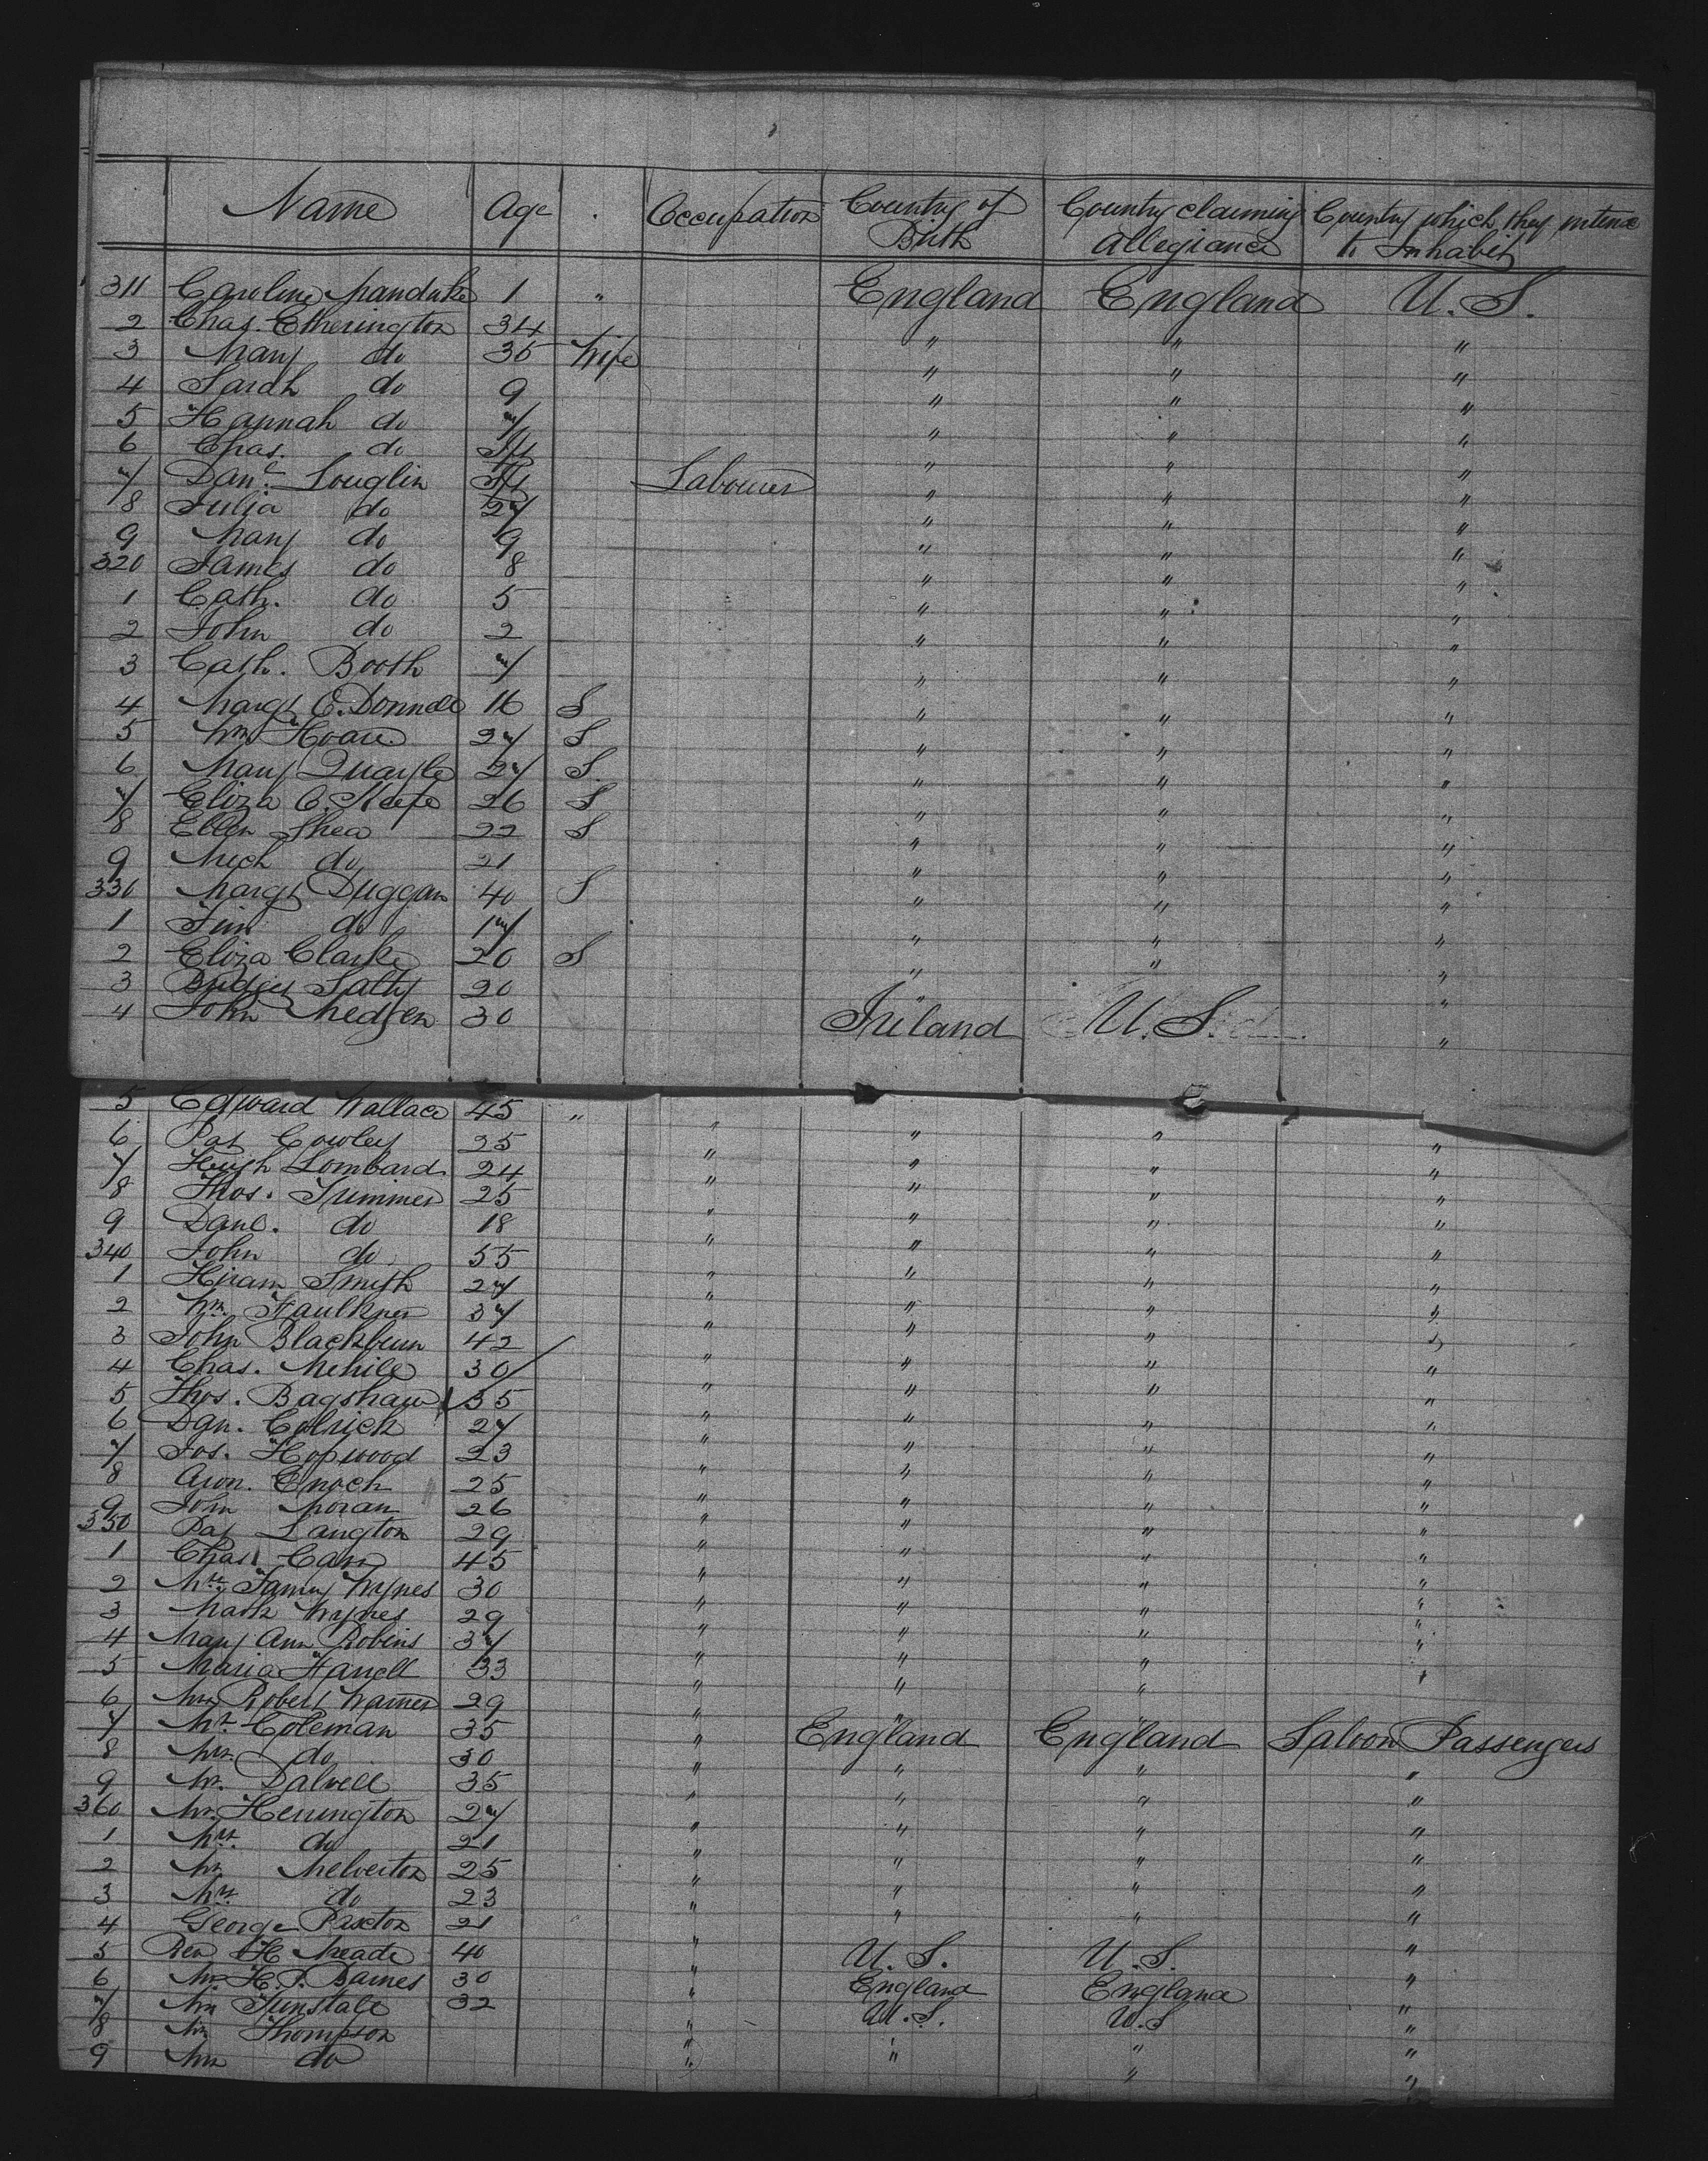 Name Age Occupation Country of Birth Country claiming Allegiance Country which they intend to Inhabit
311 Caroline Manduke 1 " England England U. S.
2 Chas. Etherington 34 " " "
3 Mary do 35 Wife " " "
4 Sarah do 9 " " "
5 Hannah do 7 " " "
6 Chas. do " " "
7 Danl. Louglin 34 Labourer " " "
8 Julia do 27 " " "
9 Mary do 9 " " "
320 James do 8 " " "
1 Cath. do 5 " " "
2 John do 2 " " "
3 Cath. Booth 7 " " "
4 Margt O.Donnell 16 S " " "
5 Wm Hoare 27 S " " "
6 Mary Quayle 27 S. " " "
7 Eliza O.Keefe 26 S " " "
8 Ellen Shea 22 S " " "
9 Mich do 21 " " "
330 Margt Duggan 40 S " " "
1 Jim do 17 " " "
2 Eliza Clarke 20 S " " "
3 Bridget Salty 20 " " "
4 John Medzen 30 Ireland U. S. "
5 Edward Wallace 45 " " " " "
6 Pat Cowley 25 " " " "
7 Hugh Lombard 24 " " " "
8 Thos. Trimmer 25 " " " "
9 Danl. do 18 " " " "
340 John do 55 " " " "
1 Hiram Smith 27 " " " "
2 Wm. Faulkner 37 " " " "
3 John Blackburn 42 " " " "
4 Chas. 30 " " " "
5 Thos. Bagshaw 35 " " " "
6 Dan. 27 " " " "
7 Jos. Hopwood 23 " " " "
8 Aron. Enoch 25 " " " "
9 John Moran 26 " " " "
350 Pat Langton 29 " " " "
1 Chas. Carr 45 " " " "
2 Mrs. Fanny Wynes 30 " " " "
3 Mark Wynes 29 " " " "
4 Mary Ann Robins 37 " " " "
5 Maria Harvell 33 " " " "
6 Mrs Robert Warner 29 " "
7 Mr. Coleman 35 " England England Saloon Passengers
8 Mrs do 30 " " " "
9 Mr. Dalvell 35 " " " "
360 Mr. Herrington 27 " " " "
1 Mrs. do 21 " " " "
2 Mr Melverton 25 " " " "
3 Mrs. do 23 " " " "
4 George Paxton 21 "
5 Rev H Meade 40 " U. S. U. S. "
6 Mr H. P. Barnes 30 " England England "
7 Mr Tunstale 32 " U. S. U. S "
8 Mr Thompson " " " "
9 Mrs do " " "